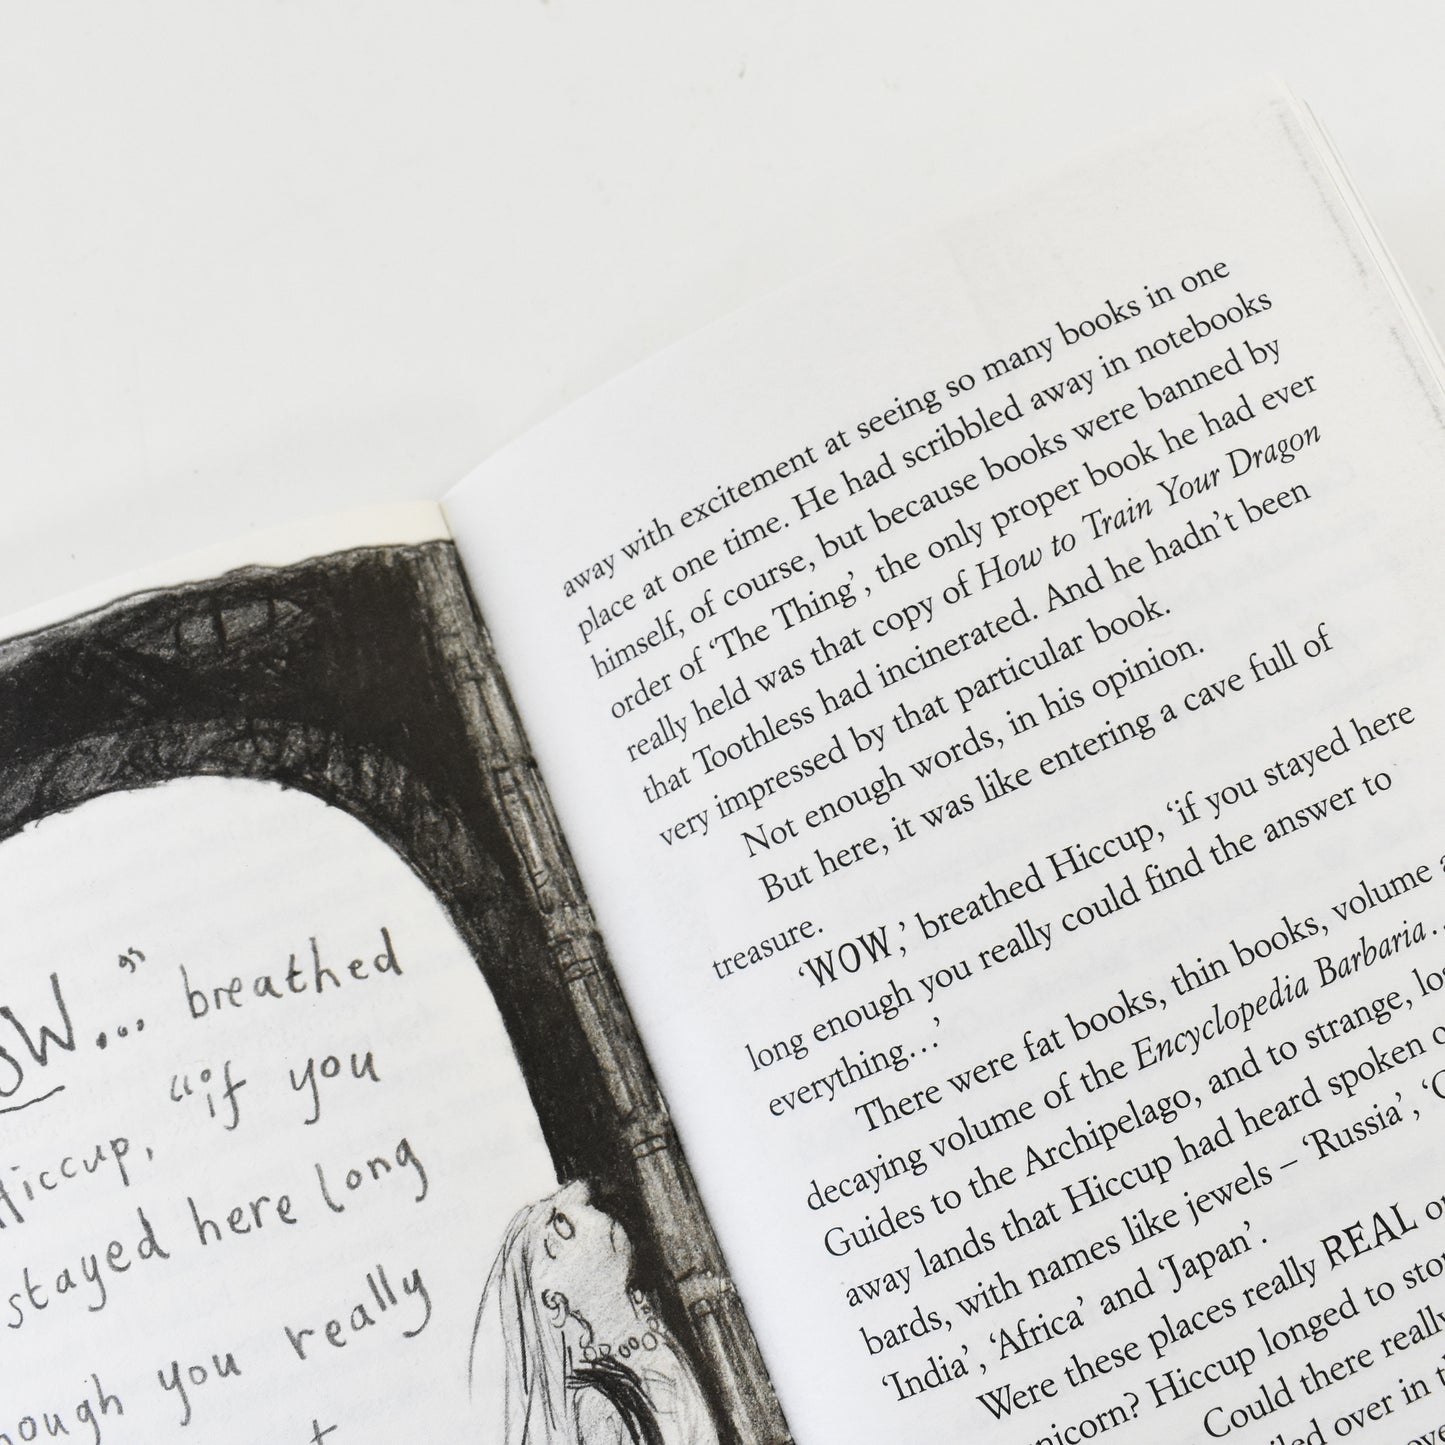 WOW..." breathed
Hiccup, "if you
stayed here long
enough you really
away with excitement at seeing so many books in one
place at one time. He had scribbled away in notebooks
himself, of course, but because books were banned by
order of ‘The Thing’, the only proper book he had ever
really held was that copy of How to Train Your Dragon
that Toothless had incinerated. And he hadn’t been
very impressed by that particular book.
Not enough words, in his opinion.
But here, it was like entering a cave full of
treasure.
‘WOW,’ breathed Hiccup, ‘if you stayed here
long enough you really could find the answer to
everything…’
There were fat books, thin books, volume
decaying volume of the Encyclopedia Barbaria…
Guides to the Archipelago, and to strange,
away lands that Hiccup had heard spoken
bards, with names like jewels – ‘Russia’,
‘India’, ‘Africa’ and ‘Japan’.
Were these places really REAL
unicorn? Hiccup longed to
Could there really
over in